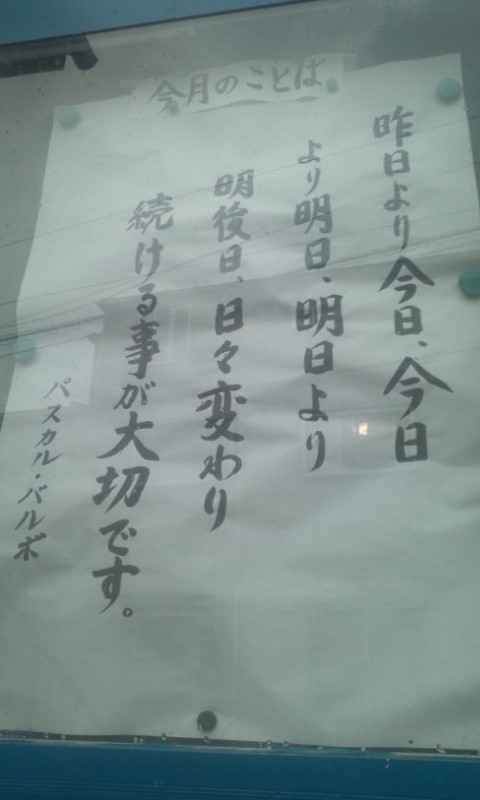 今月のことば
昨日より今日、今日
より明日、明日より
明後日、日々変わり
続ける事が大切です。
パスカル・バルボ